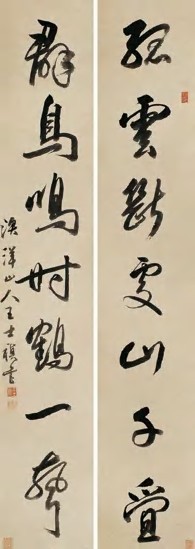 孤雲斷處山千疊
群鳥鳴時鶴一聲
漁洋山人王士禛書